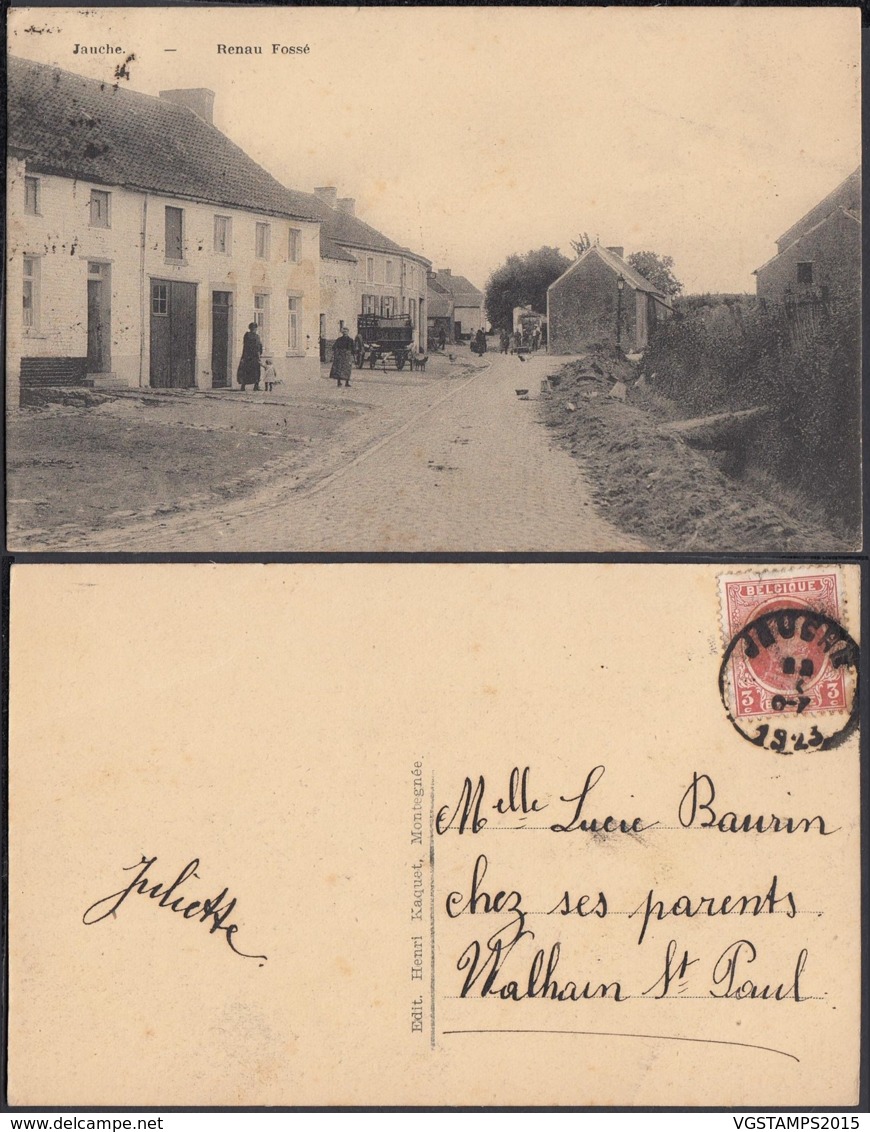 Jauche. — Renau Fossé
BELGIQUE
JAUCHE
3 c 3 c
1923
Melle Lucie Baurin
chez ses parents
Walhain St Paul
Edit. Henri Kaquet, Montegnée.
Juliette
VGSTAMPS2015